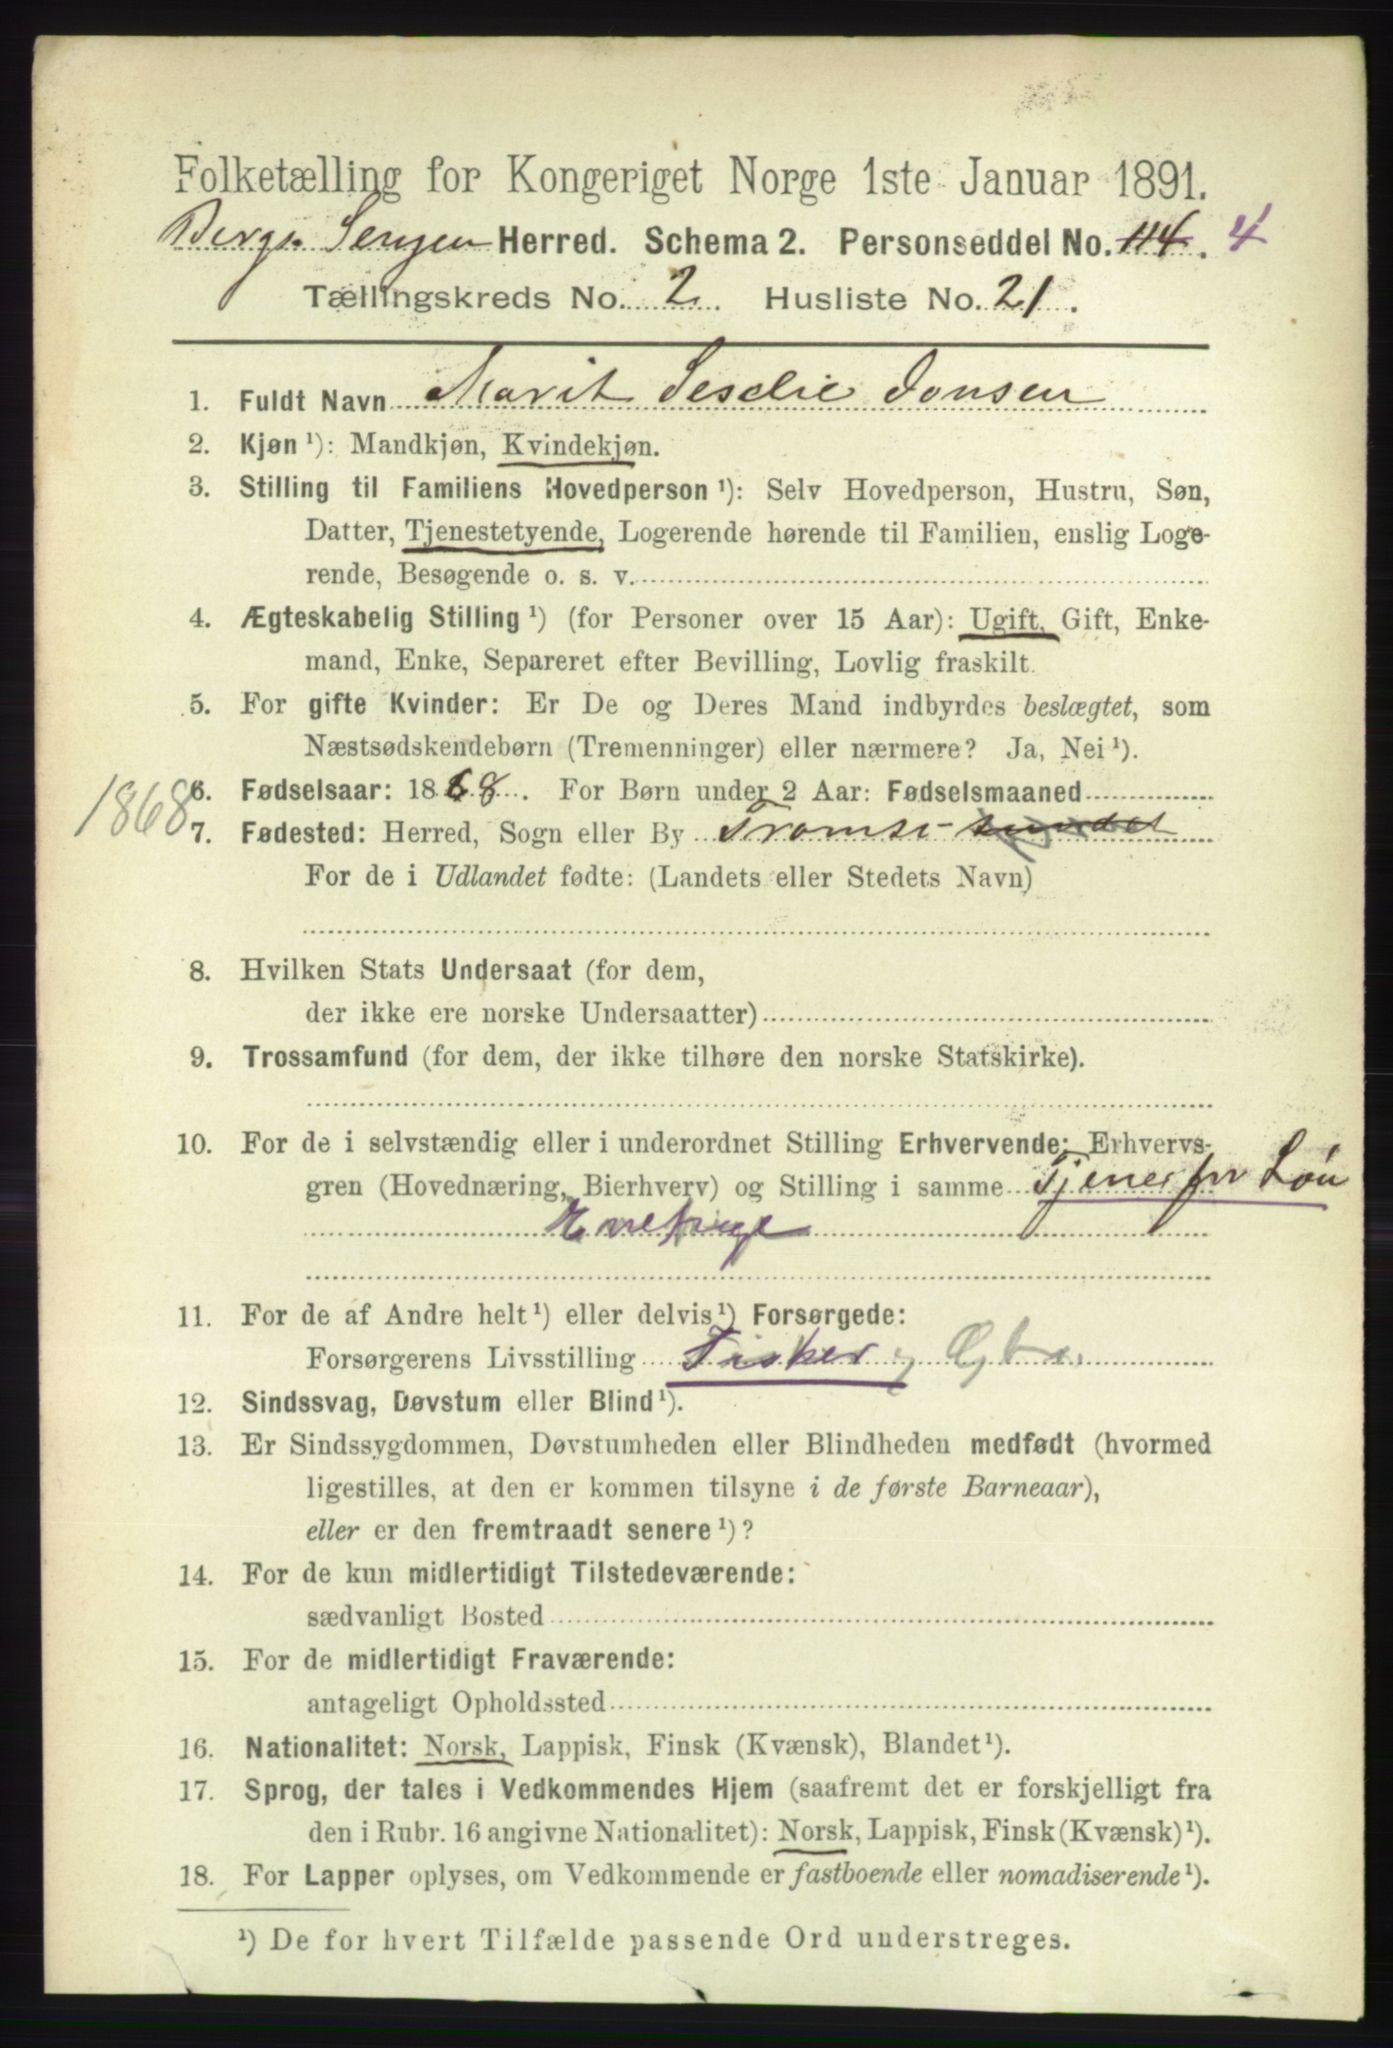 Folketælling for Kongeriget Norge 1ste Januar 1891.
Bergs Senjen Herred. Schema 2. Personseddel No. 114. 4
Tællingskreds No. 2. Husliste No. 21.
1. Fuldt Navn Marit Jonsen
2. Kjøn ¹): Mandkjøn, Kvindekjøn.
3. Stilling til Familiens Hovedperson ¹): Selv Hovedperson, Hustru, Søn,
Datter, Tjenestetyende, Logerende hørende til Familien, enslig Loge-
rende, Besøgende o. s. v.
4. Ægteskabelig Stilling ¹) (for Personer over 15 Aar): Ugift, Gift, Enke-
mand, Enke, Separeret efter Bevilling, Lovlig fraskilt.
5. For gifte Kvinder: Er De og Deres Mand indbyrdes beslægtet, som
Næstsødskendebørn (Tremenninger) eller nærmere? Ja, Nei ¹).
1868 6. Fødselsaar: 1868. For Børn under 2 Aar: Fødselsmaaned
7. Fødested: Herred, Sogn eller By Tromsø- sundet
For de i Udlandet fødte: (Landets eller Stedets Navn)
8. Hvilken Stats Undersaat (for dem,
der ikke ere norske Undersaatter)
9. Trossamfund (for dem, der ikke tilhøre den norske Statskirke).
10. For de i selvstændig eller i underordnet Stilling Erhvervende: Erhvervs-
gren (Hovednæring, Bierhverv) og Stilling i samme Tjener for Løn
11. For de af Andre helt ¹) eller delvis ¹) Forsørgede:
Forsørgerens Livsstilling Fisker
12. Sindssvag, Døvstum eller Blind ¹).
13. Er Sindssygdommen, Døvstumheden eller Blindheden medfødt (hvormed
ligestilles, at den er kommen tilsyne i de første Barneaar),
eller er den fremtraadt senere ¹)?
14. For de kun midlertidigt Tilstedeværende:
sædvanligt Bosted
15. For de midlertidigt Fraværende:
antageligt Opholdssted
16. Nationalitet: Norsk, Lappisk, Finsk (Kvænsk), Blandet ¹).
17. Sprog, der tales i Vedkommendes Hjem (saafremt det er forskjelligt fra
den i Rubr. 16 angivne Nationalitet): Norsk, Lappisk, Finsk (Kvænsk) ¹).
18. For Lapper oplyses, om Vedkommende er fastboende eller nomadiserende ¹).
¹) De for hvert Tilfælde passende Ord understreges.